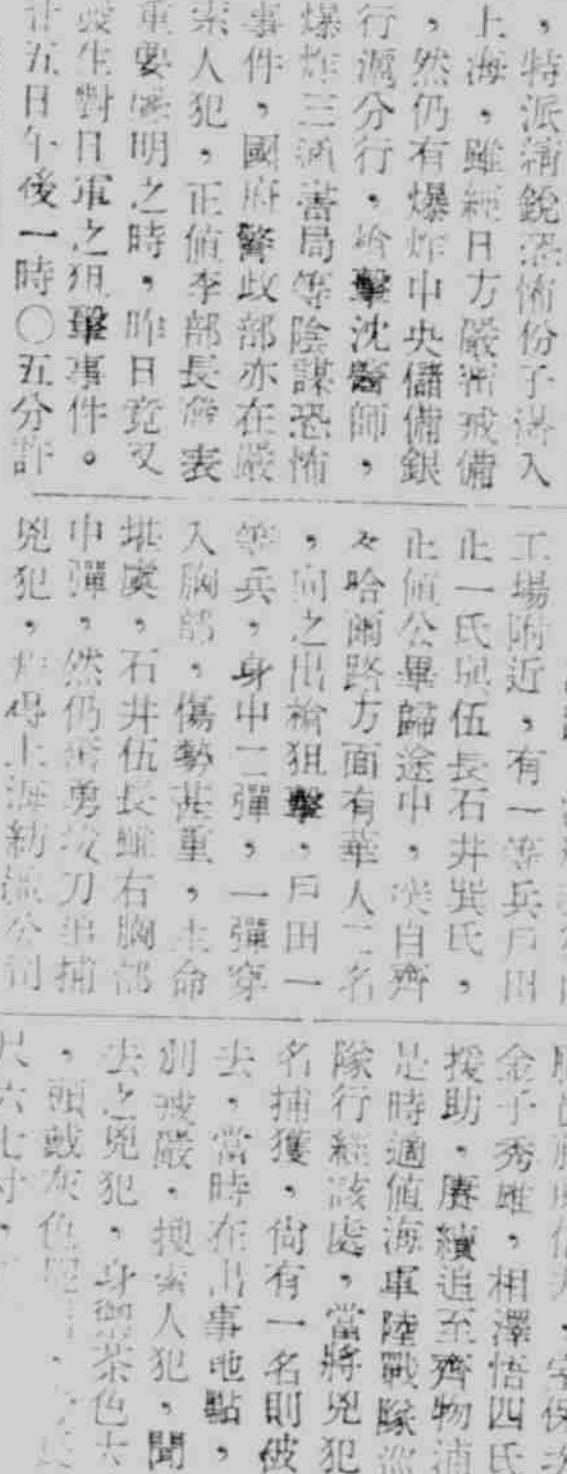 ，特派精銳恐怖份子潛入
上海，雖經日方嚴密戒備
，然仍有爆炸中央儲備銀
行滬分行，槍擊沈醫師，
爆炸三通書局等陰謀恐怖
事件，國府警政部亦在嚴
索人犯，正值李部長發表
重要聲明之時，昨日竟又
發生對日軍之狙擊事件。
廿五日午後一時〇五分許
工場附近，有一等兵戶田
正一氏與伍長石井巽氏，
正值公畢歸途中，突自齊
々哈爾路方面有華人二名
，向之出槍狙擊，戶田一
等兵，身中二彈，一彈穿
入胸部，傷勢甚重，生命
堪虞，石井伍長雖右胸部
中彈，然仍奮勇拔刀追捕
兇犯，得上海紡織公司
金子秀雄，相澤悟四氏
援助，賡續追至齊物浦
是時適值海軍陸戰隊巡
隊行經該處，當將兇犯
名捕獲，尚有一名則被
去，當時在出事地點，
別戒嚴，搜索人犯，聞
去之兇犯，身御茶色大
，頭戴灰色
尺六七寸，